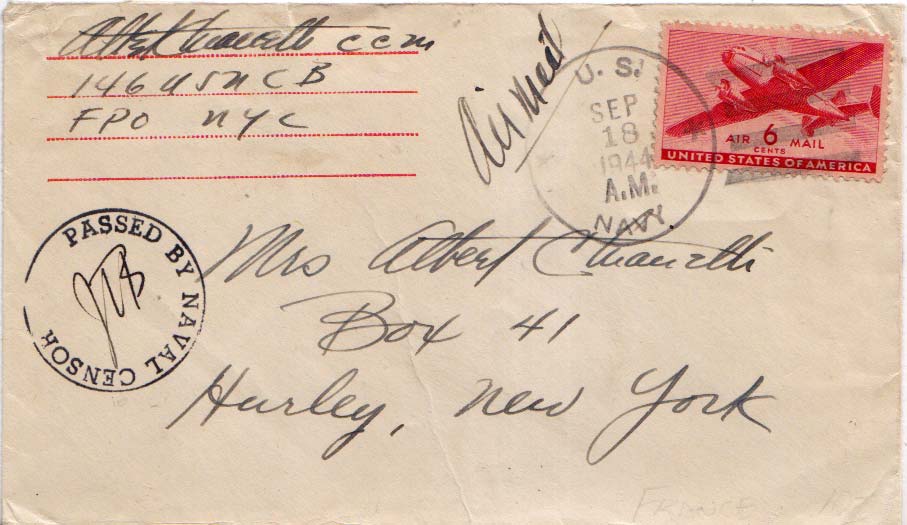 Albert CCM
146 USNCB
FPO NYC
Air Mail
U. S.
SEP
18
1944
A.M.
NAVY
AIR 6 MAIL
CENTS
UNITED STATES OF AMERICA
PASSED BY NAVAL CENSOR
Mrs Albert
Box 41
Hurley, New York
FRANCE